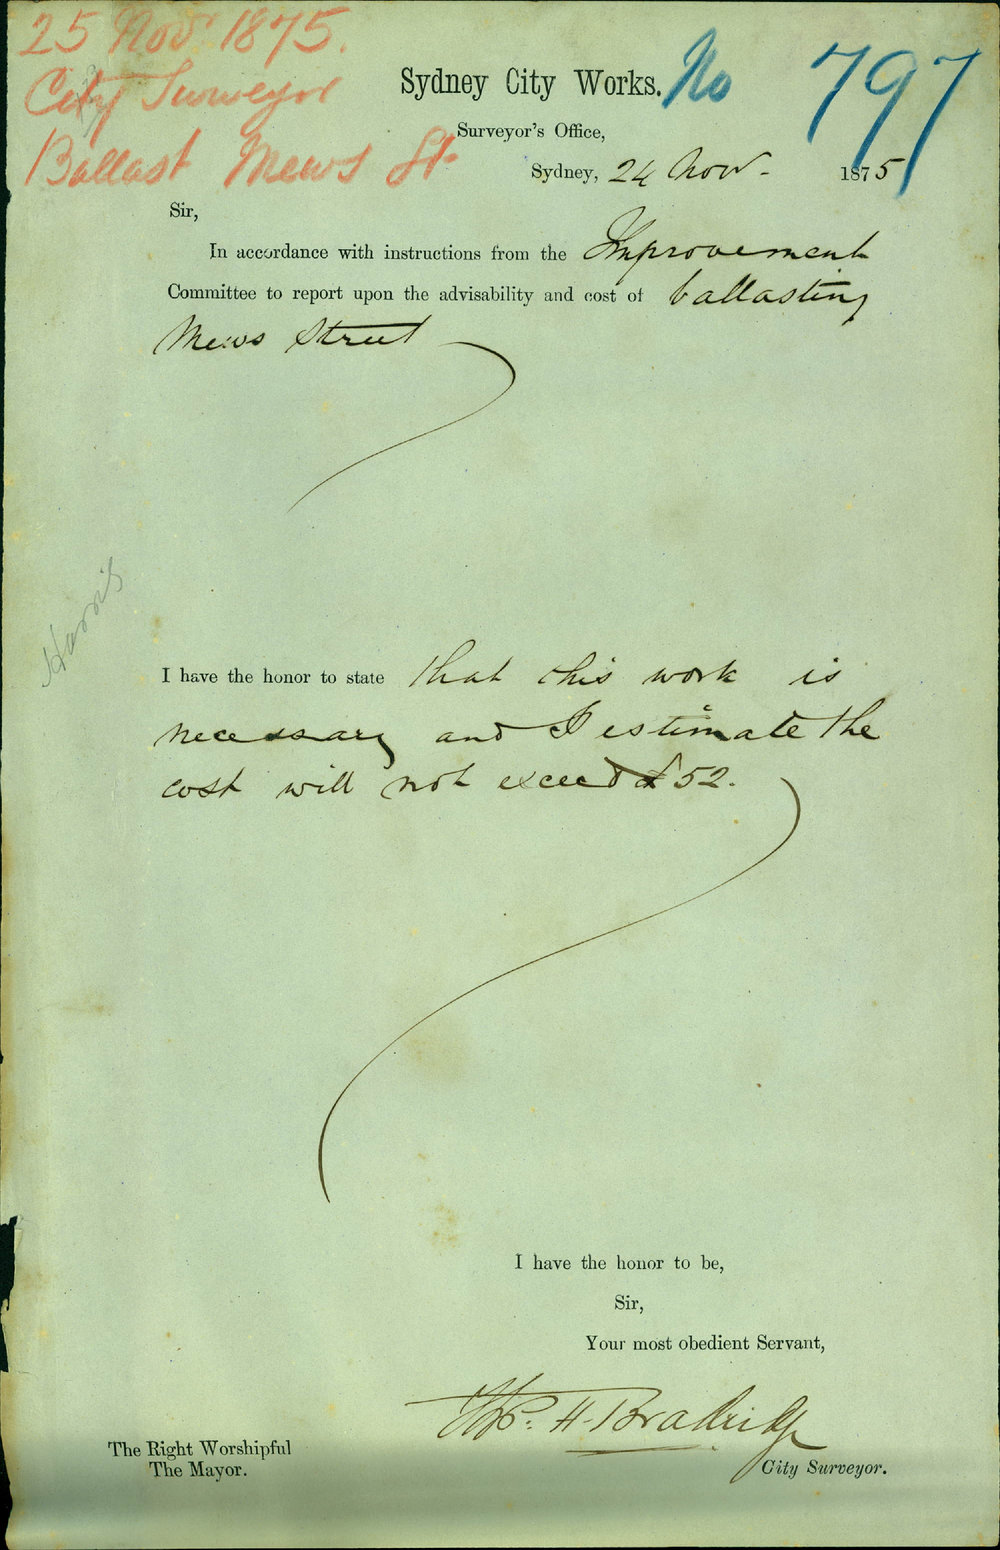 25 Nov. 1875.
City Surveyor
Ballast Mews St
No 797
Sydney City Works.
Surveyor's Office,
Sydney, 24 Nov. 1875
Sir,
In accordance with instructions from the Improvement
Committee to report upon the advisability and cost of ballasting
Mews Street
Harris
I have the honor to state that this work is
necessary and I estimate the
cost will not exceed £52.
I have the honor to be,
Sir,
Your most obedient Servant,
H. Bradridge
City Surveyor.
The Right Worshipful
The Mayor.